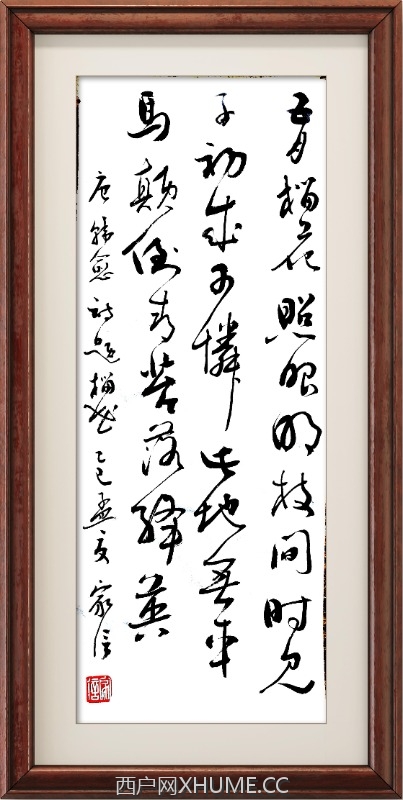 五月榴花照眼明枝间时见
子初成可憐此地無車
馬顛倒青苔落絳英
唐韓愈诗題榴花 乙巳孟夏 家信
西户网XHUME.CC